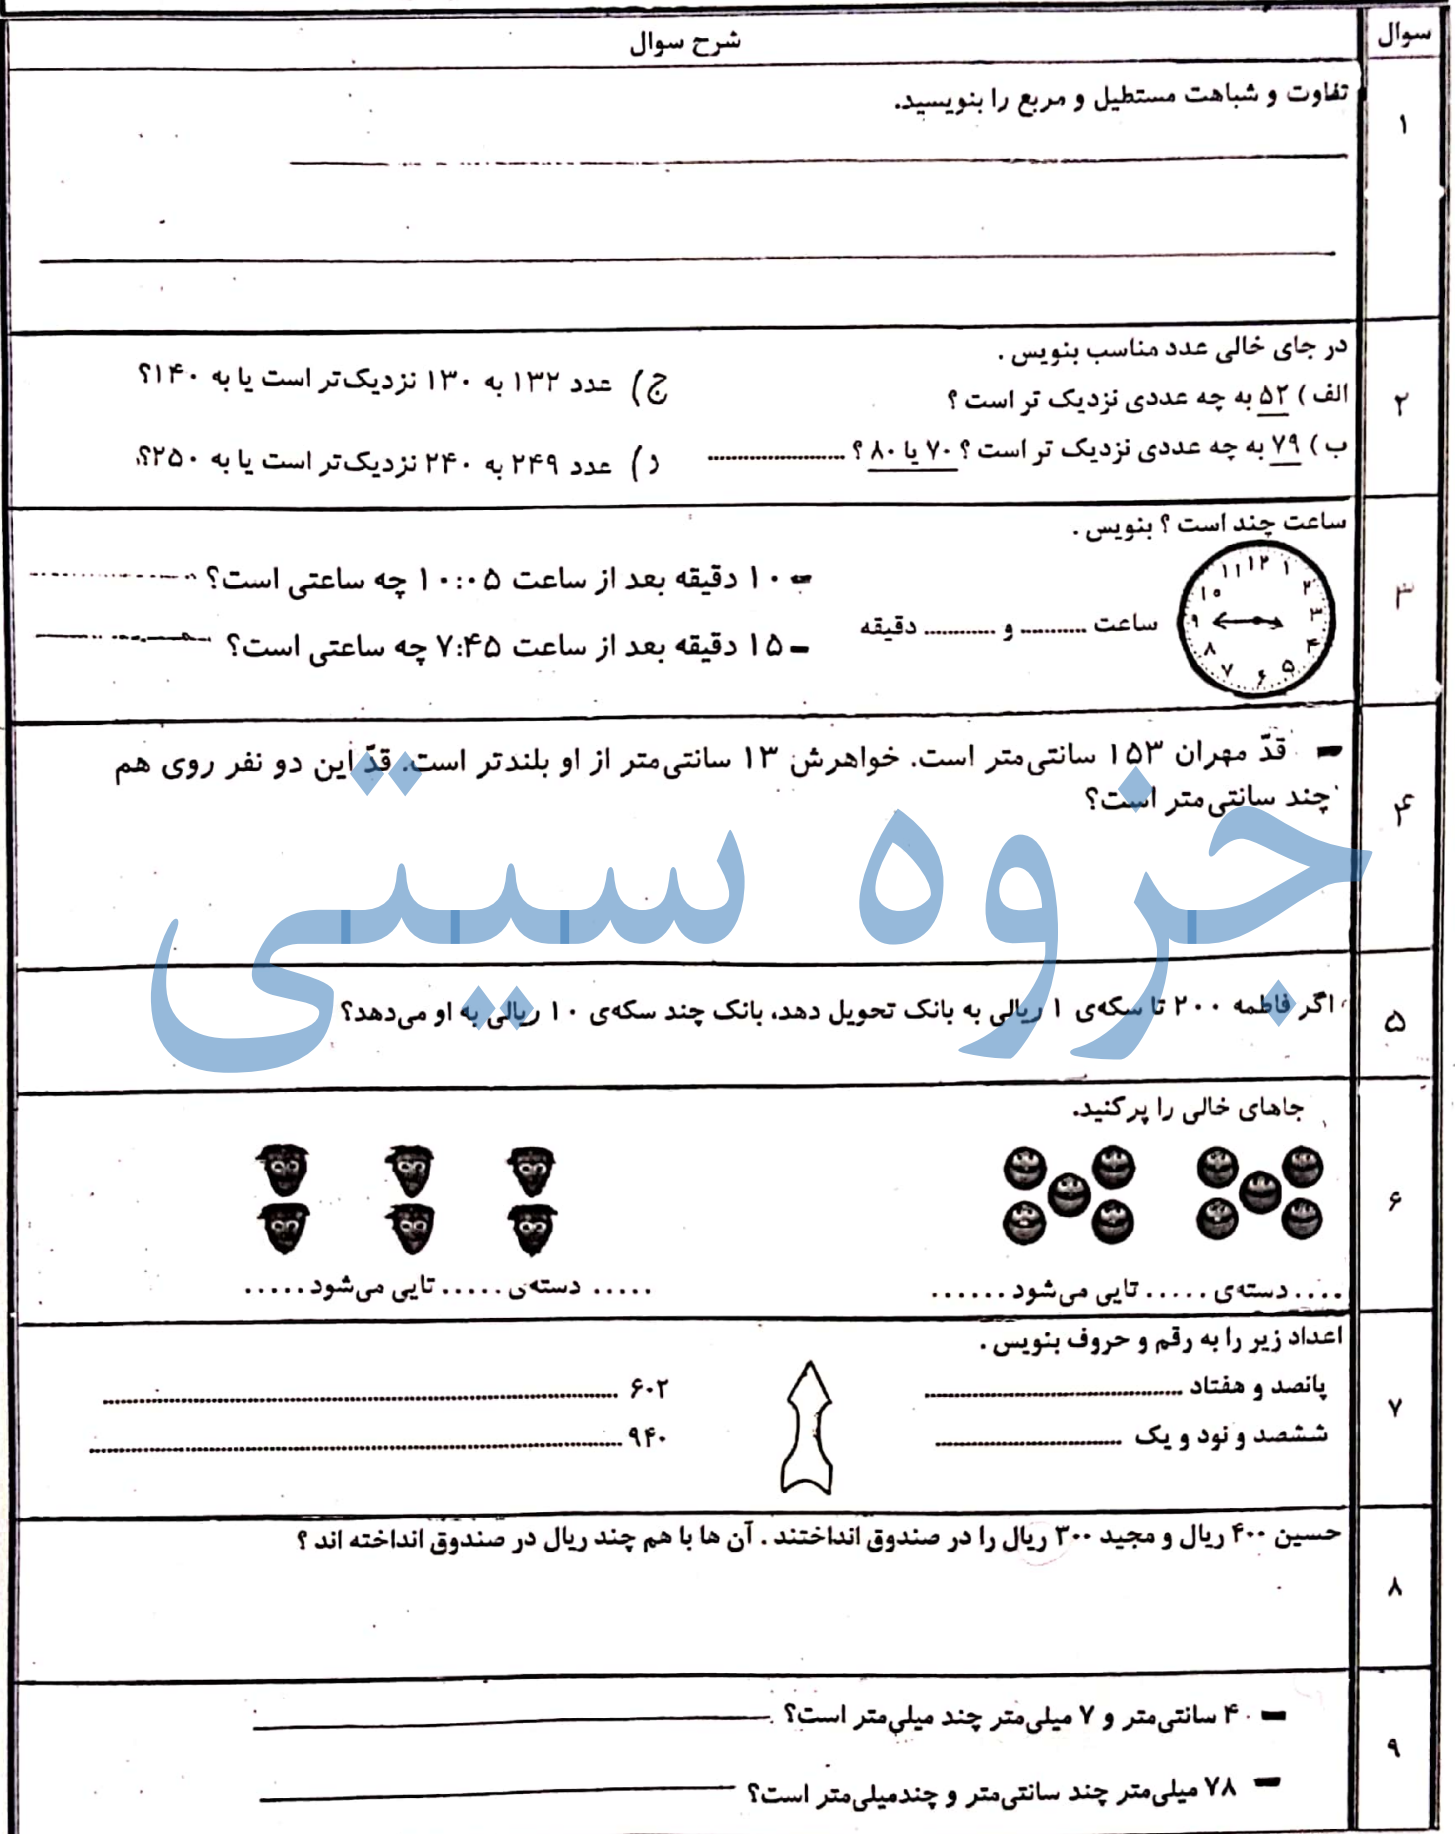 سوال
شرح سوال
۱
تفاوت و شباهت مستطیل و مربع را بنویسید.
۲
در جای خالی عدد مناسب بنویس .
الف ) ۵۲ به چه عددی نزدیک تر است ؟
ب ) ۷۹ به چه عددی نزدیک تر است ؟ ۷۰ یا ۸۰ ؟ ........................
ج) عدد ۱۳۲ به ۱۳۰ نزدیک‌تر است یا به ۱۴۰؟
د) عدد ۲۴۹ به ۲۴۰ نزدیک‌تر است یا به ۲۵۰؟
۳
ساعت چند است ؟ بنویس .
۱۲ ۱ ۲ ۳ ۴ ۵ ۶ ۷ ۸ ۹ ۱۰ ۱۱
ساعت ........... و ............ دقیقه
- ۱۰ دقیقه بعد از ساعت ۱۰:۰۵ چه ساعتی است؟
- ۱۵ دقیقه بعد از ساعت ۷:۴۵ چه ساعتی است؟
۴
- قدّ مهران ۱۵۳ سانتی‌متر است. خواهرش ۱۳ سانتی‌متر از او بلندتر است. قدّ این دو نفر روی هم
چند سانتی‌متر است؟
جزوه سیتی
۵
اگر فاطمه ۲۰۰ تا سکه‌ی ۱ ریالی به بانک تحویل دهد، بانک چند سکه‌ی ۱۰ ریالی به او می‌دهد؟
۶
جاهای خالی را پر کنید.
.... دسته‌ی ..... تایی می‌شود ......
..... دسته‌ی ..... تایی می‌شود .....
۷
اعداد زیر را به رقم و حروف بنویس .
پانصد و هفتاد ..............................................
ششصد و نود و یک .................................
۶۰۲ ............................................................
۹۴۰ ............................................................
۸
حسین ۴۰۰ ریال و مجید ۳۰۰ ریال را در صندوق انداختند . آن ها با هم چند ریال در صندوق انداخته اند ؟
۹
- ۴ سانتی‌متر و ۷ میلی‌متر چند میلی‌متر است؟
- ۷۸ میلی‌متر چند سانتی‌متر و چندمیلی‌متر است؟